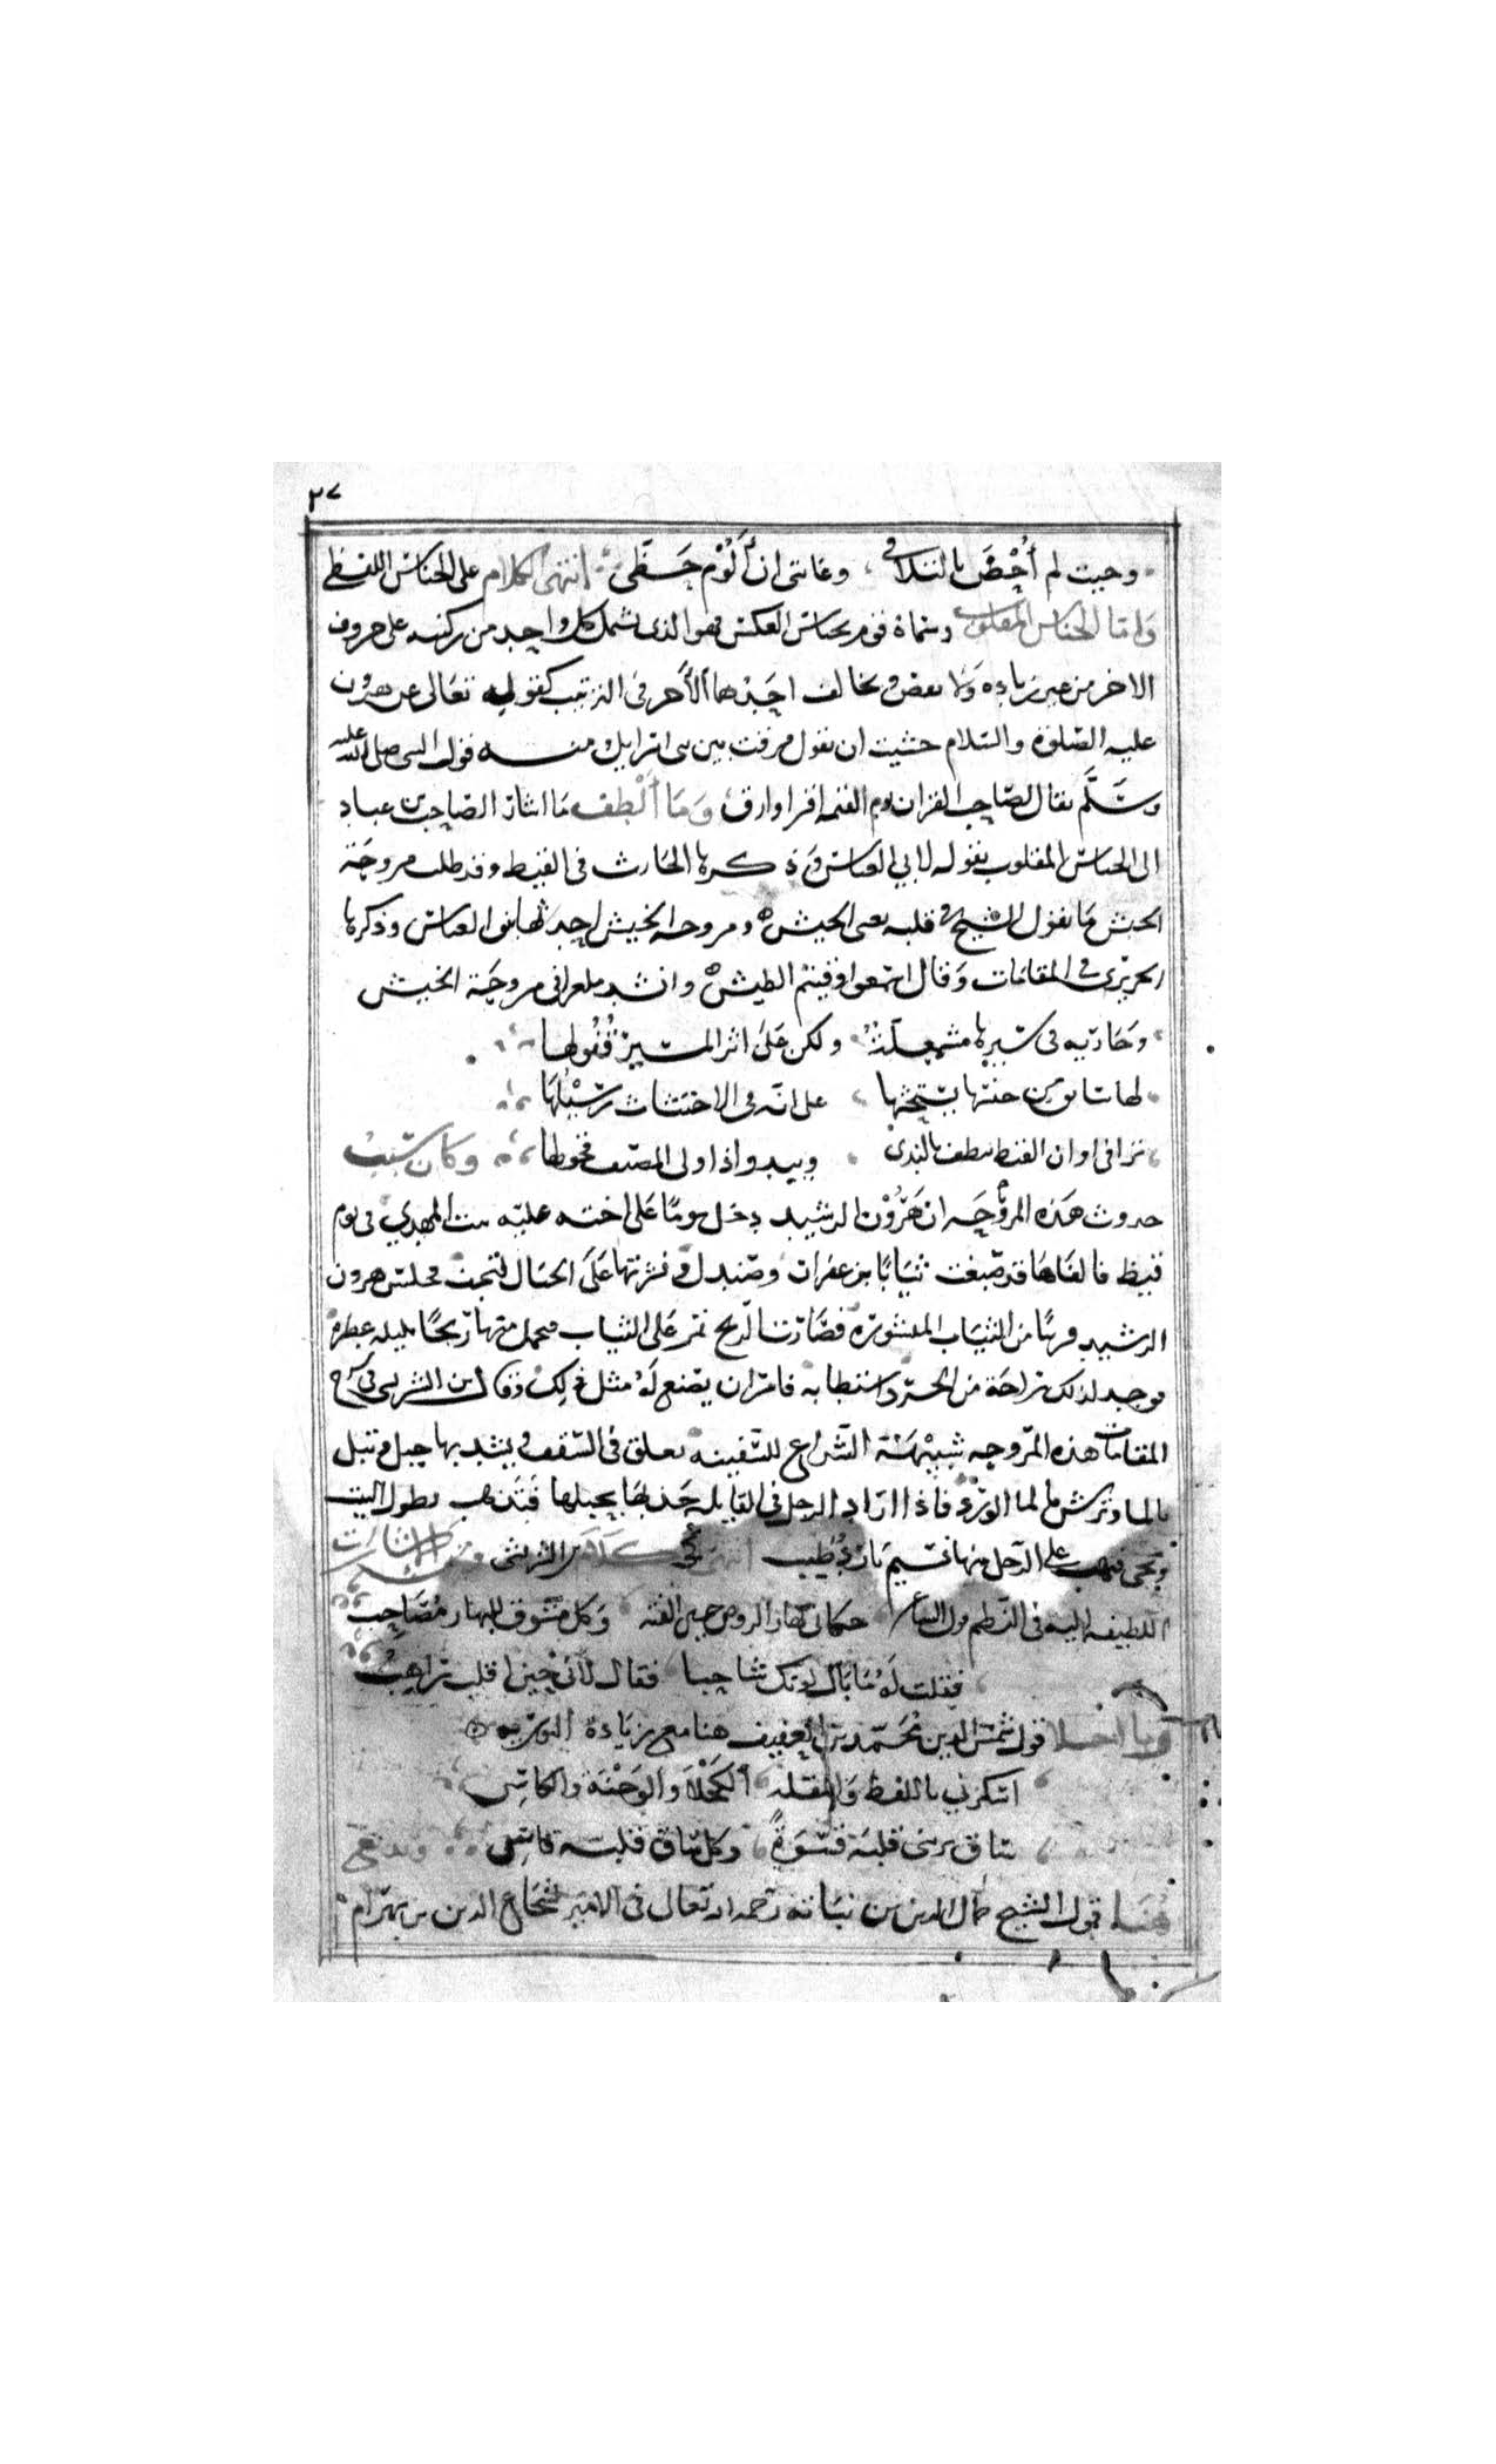 ٢٧
وحيث لم أحظ بالتلاقي وغايتي ان ألوم حظي انتهى الكلام على الجناس اللفظي
واما الجناس المقلوب وسماه قوم جناس العكس فهو الذي يشمل كل واحد من ركنيه على حروف
الاخر من غير زيادة ولا نقص ويخالف احدهما الآخر في الترتيب كقوله تعالى عن هرون
عليه الصلوة والسلام خشيت ان تقول فرقت بين بني اسرايل ومنه قول النبي صلى الله عليه
وسلم يقال لصاحب القران يوم القيمة اقرا وارق وما ألطف ما اشار الصاحب بن عباد
الى الجناس المقلوب بقوله لابي العباس وذكرها الحارث في القيظ وقد طلب مروحة
الخيش ما يقول الشيخ في قلبه يعني الخيش ومروحة الخيش احدثها بنو العباس وذكرها
الحريري في المقامات وقال اسمعوا وقيتم الطيش وانشد ملغزا في مروحة الخيش
وجارية في سيرها مشمعلة ولكن على اثر المسير قفولها
لها سايق من جنسها يستحثها على انه في الاحتثاث رسيلها
ترا في اوان القيظ تنطف بالندى ويبدو اذا ولى المصيف قحولها وكان سبب
حدوث هذه المروحة ان هرون الرشيد دخل يوما على اخته علية بنت المهدي في يوم
قيظ فالفاها قد صبغت ثيابا بزعفران وصندل ونشرتها على الحبال لتجف فجلس هرون
الرشيد قريبا من الثياب المنشورة فصارت الريح تمر على الثياب فتحمل منها ريحا بليلة عطرة
فوجد لذلك راحة من الحر واستطابه فامر ان يصنع له مثل ذلك وقال ابن الشريشي في شرح
المقامات هذه المروحة شبيهة الشراع للسفينة تعلق في السقف ويشد بها حبل وتبل
بالما وترش بالما الورد فاذا اراد الرجل في القايلة جذبها بحبلها فتذهب بطول البيت
وتجي فيهب على الرجل منها نسيم بارد طيب انتهى كلام الشريشي ومن الاشارات
اللطيفة اليه في النظم قول الشاعر حكاني بهار الروض حين الفته وكل مشوق للبهار مصاحب
فقلت له ما بال لونك شاحبا فقال لاني حين اقلب راهب
وما احلا قول شمس الدين محمد بن العفيف هنا مع زيادة التورية
اسكرني باللفظ والمقلة الكحلا والوجنة والكاس
ساق يريني قلبه قسوة وكل ساق قلبه قاس
هنا قول الشيخ جمال الدين بن نباتة رحمه الله تعالى في الامير شجاع الدين بن بهرام